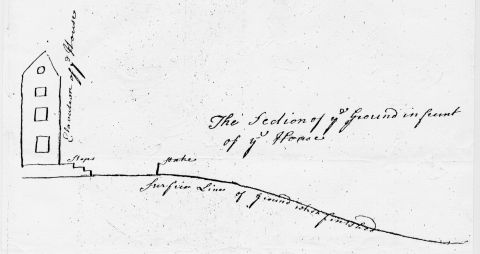 Elevation of ye House
The Section of ye Ground in frunt
of ye House
Steps
stake
Surface Line of ground when finished